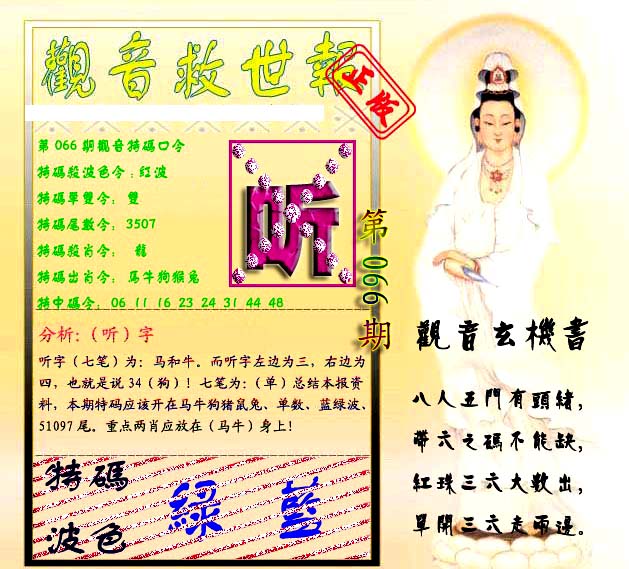 觀音救世報
正版
第 066 期觀音特碼口令
特碼殺波色令：紅波
特碼單雙令： 雙
特碼尾數令： 3507
特碼殺肖令： 龍
特碼出肖令： 馬牛狗猴兔
特中碼令： 06 11 16 23 24 31 44 48
听
第066期
分析：（听）字
听字（七笔）为：马和牛。而听字左边为三，右边为
四，也就是说 34（狗）！七笔为：（单）总结本报资
料，本期特码应该开在马牛狗猪鼠兔、单数、蓝绿波、
51097 尾。重点两肖应放在（马牛）身上！
特碼
波色
綠 藍
觀音玄機書
八人五門有頭緒，
帶六之碼不能缺，
紅珠三六大數出，
單開三六走兩邊。